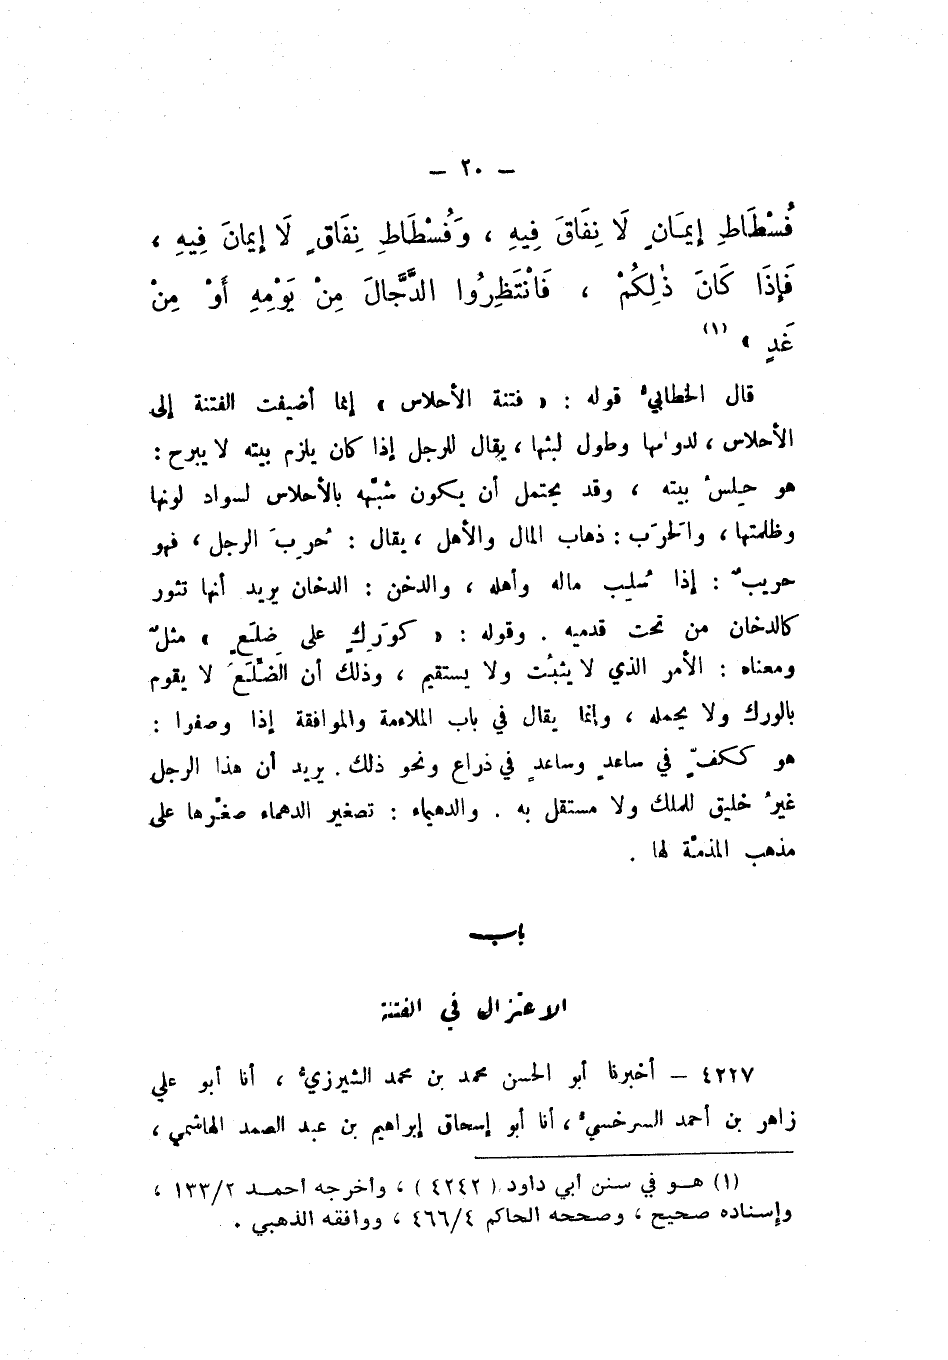 – ٢٠ –
فُسْطَاطِ إِيمَانٍ لَا نِفَاقَ فِيهِ ، وَفُسْطَاطِ نِفَاقٍ لَا إِيمَانَ فِيهِ ،
فَإِذَا كَانَ ذٰلِكُمْ ، فَانْتَظِرُوا الدَّجَّالَ مِنْ يَوْمِهِ أَوْ مِنْ
غَدٍ » (١)
قال الخطابيُّ قوله : « فتنة الأحلاس » إنما أضيفت الفتنة إلى
الأحلاس ، لدوامها وطول لبثها ، يقال للرجل إذا كان يلزم بيته لا يبرح :
هو حِلسُ بيته ، وقد يحتمل أن يكون شبَّهه بالأحلاس لسواد لونها
وظلمتها ، والحَرَب : ذهاب المال والأهل ، يقال : حُرِبَ الرجل ، فهو
حريبٌ : إذا سُلِب ماله وأهله ، والدخن : الدخان يريد أنها تثور
كالدخان من تحت قدميه . وقوله : « كوَرِكٍ على ضِلَعٍ » مثلٌ
ومعناه : الأمر الذي لا يثبُت ولا يستقيم ، وذلك أن الضِّلَعَ لا يقوم
بالورك ولا يحمله ، وإنما يقال في باب الملاءمة والموافقة إذا وصفوا :
هو ككفٍّ في ساعدٍ وساعدٍ في ذراع ونحو ذلك . يريد أن هذا الرجل
غيرُ خليق للملك ولا مستقل به . والدهيماء : تصغير الدهماء صغَّرها على
مذهب المذمَّة لها .
باب
الاعتزال في الفتنة
٤٢٢٧ – أخبرنا أبو الحسن محمد بن محمد الشيرزيُّ ، أنا أبو علي
زاهر بن أحمد السرخسيُّ ، أنا أبو إسحاق إبراهيم بن عبد الصمد الهاشمي ،
(١) هو في سنن أبي داود ( ٤٢٤٢ ) ، وأخرجه أحمد ١٣٣/٢ ،
وإسناده صحيح ، وصححه الحاكم ٤٦٦/٤ ، ووافقه الذهبي .